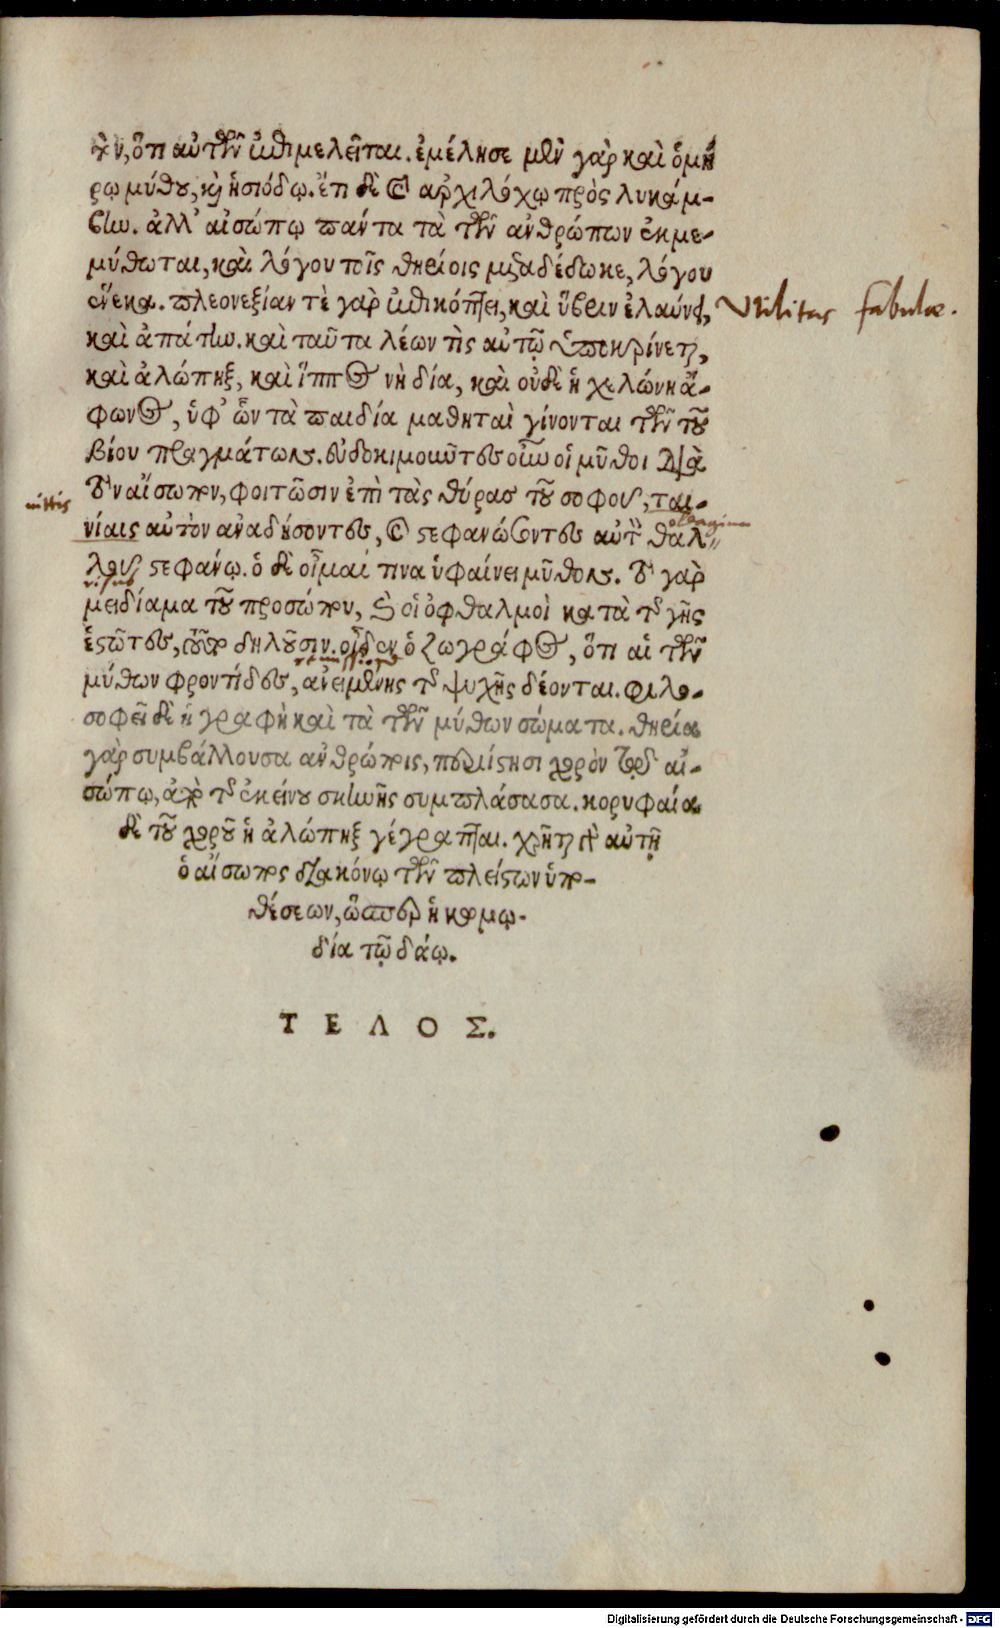 πον, ὅτι αὐτῶν ἐπιμελεῖται. ἐμέλησε μὲν γὰρ καὶ ὁμή
ρῳ μύθου, καὶ ἡσιόδῳ. ἔτι δὲ καὶ ἀρχιλόχῳ πρὸς λυκάμ-
βην. ἀλλ' αἰσώπῳ πάντα τὰ τῶν ἀνθρώπων ἐκμε-
μύθωται, καὶ λόγου τοῖς θηρίοις μεταδέδωκε, λόγου
ἕνεκα. πλεονεξίαν τὲ γὰρ ἐπικόπτει, καὶ ὕβριν ἐλαύνει,
Vtilitas fabulae.
καὶ ἀπάτην. καὶ ταῦτα λέων τὶς αὐτῷ ὑποκρίνεται,
καὶ ἀλώπηξ, καὶ ἵππος νὴ δία, καὶ οὐδὲ ἡ χελώνη ἄ-
φωνος, ὑφ' ὧν τὰ παιδία μαθηταὶ γίνονται τῶν τοῦ
βίου πραγμάτων. εὐδοκιμοῦντες οὖν οἱ μῦθοι διὰ
τὸν αἴσωπον, φοιτῶσιν ἐπὶ τὰς θύρας τοῦ σοφοῦ, ται-
vittis
νίαις αὐτὸν ἀναδήσοντες, καὶ στεφανώσοντες αὐτὸν θαλ-
oleagina
λοῦ στεφάνῳ. ὁ δὲ οἶμαί τινα ὑφαίνει μῦθον. τὸ γὰρ
risus
μειδίαμα τοῦ προσώπου, καὶ οἱ ὀφθαλμοὶ κατὰ τῆς γῆς
ἑστῶτες, τοῦτο δηλοῦσιν. οἶδεν ὁ ζωγράφος, ὅτι αἱ τῶν
remissione
μύθων φροντίδες, ἀνειμένης τῆς ψυχῆς δέονται. φιλο-
σοφεῖ δὲ ἡ γραφὴ καὶ τὰ τῶν μύθων σώματα. θηρία
γὰρ συμβάλλουσα ἀνθρώποις, περιίστησι χορὸν τῷ αἰ-
σώπῳ, ἀπὸ τῆς ἐκείνου σκηνῆς συμπλάσασα. κορυφαία
δὲ τοῦ χοροῦ ἡ ἀλώπηξ γέγραπται. χρῆται γὰρ αὐτῇ
ὁ αἴσωπος διακόνῳ τῶν πλείστων ὑπο-
θέσεων, ὥσπερ ἡ κωμῳ-
δία τῷ δάῳ.
ΤΕΛΟΣ.
Digitalisierung gefördert durch die Deutsche Forschungsgemeinschaft - DFG